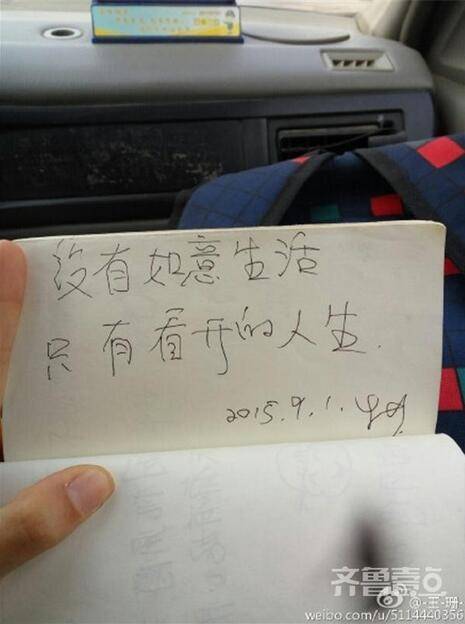 没有如意生活
只有看开的人生.
2015.9.1.
齐鲁壹点
@-王-珊-
weibo.com/u/5114440356